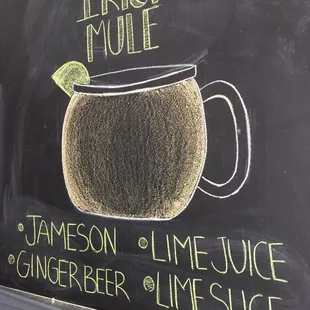 IRISH
MULE
• JAMESON • LIME JUICE
• GINGER BEER • LIME SLICE